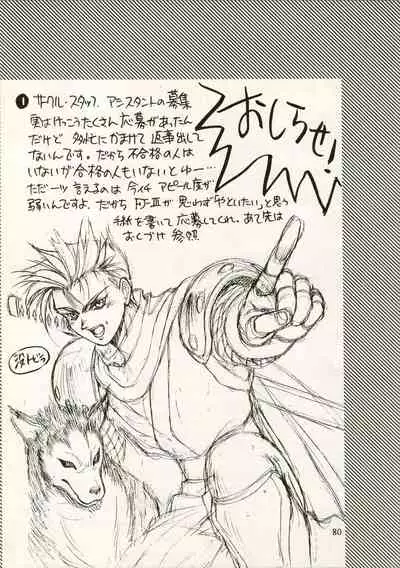 おしらせ!
❶ サークル・スタッフ、アシスタントの募集
実はけっこうたくさん応募があったん
だけど 多忙にかまけて 返事出して
ないんです。だから不合格の人は
いないが合格の人もいないとゆー…
ただ一ツ 言えるのは 今イチ アピール度が
弱いんですよ。だから FJ-Ⅲが 思わず「うっ」といたい、と思う
手紙を書いて 応募してくれ。あて先は
おくづけ 参照
没トビラ
80